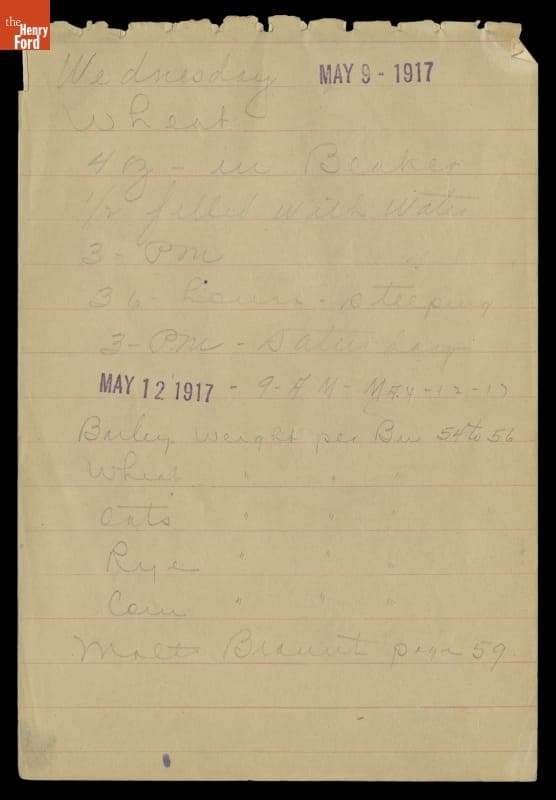 the
Henry
Ford
Wednesday MAY 9 - 1917
Wheat
4 oz - in Beaker
1/2 filled with Water
3 - PM
36 - hours - steeping
3 - PM - Saturday
MAY 12 1917 - 9 - A M - MAY - 12 - 17
Barley weight per Bu 54 to 56
Wheat " " "
Oats " " "
Rye " " "
Corn " " "
page 59